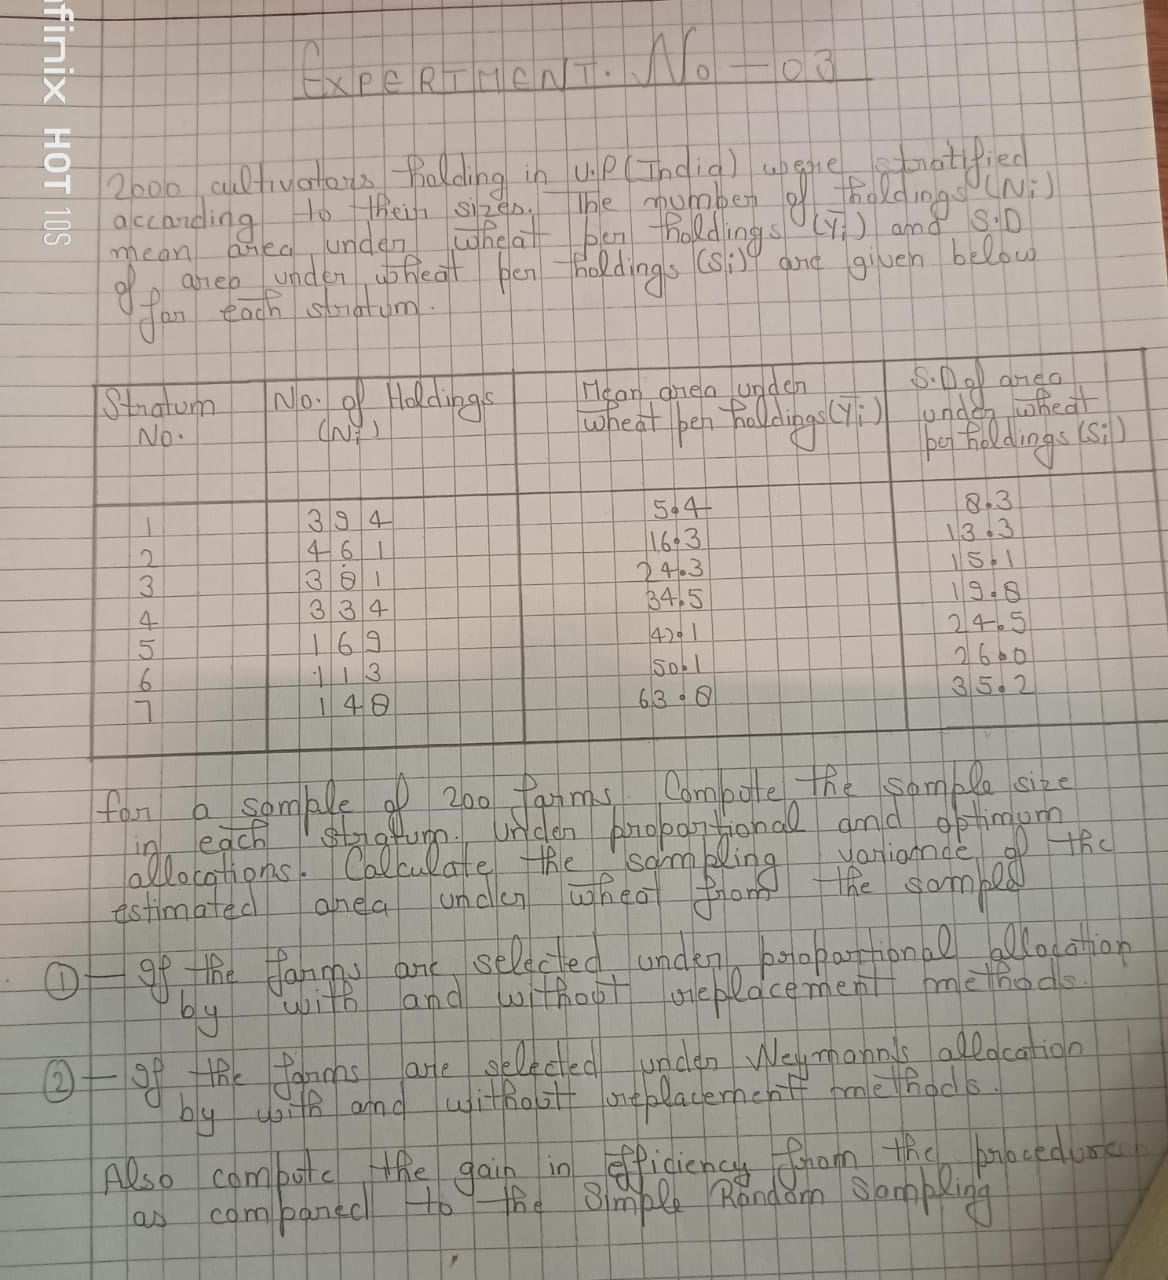 finix HOT 10S
EXPERIMENT. No - 03
2000 cultivators holding in U.P (India) where stratified
according to their sizes. The number of holdings (Ni)
mean area under wheat per holdings (Ȳi) and S.D
of area under wheat per holdings (Si) are given below
for each stratum.
Stratum No. | No. of Holdings (Ni) | Mean area under wheat per holdings (Ȳi) | S.D of area under wheat per holdings (Si)
1 394 5.4 8.3
2 461 16.3 13.3
3 381 24.3 15.1
4 334 34.5 19.8
5 169 42.1 24.5
6 113 50.1 26.0
7 148 63.8 35.2
for a sample of 200 farms. Compute the sample size
in each stratum. Under proportional and optimum
allocations. Calculate the sampling variance of the
estimated area under wheat from the sample
① — If the farms are selected under proportional allocation
by with and without replacement methods.
② — If the farms are selected under Neymann's allocation
by with and without replacement methods.
Also compute the gain in efficiency from the procedure
as compared to the Simple Random Sampling